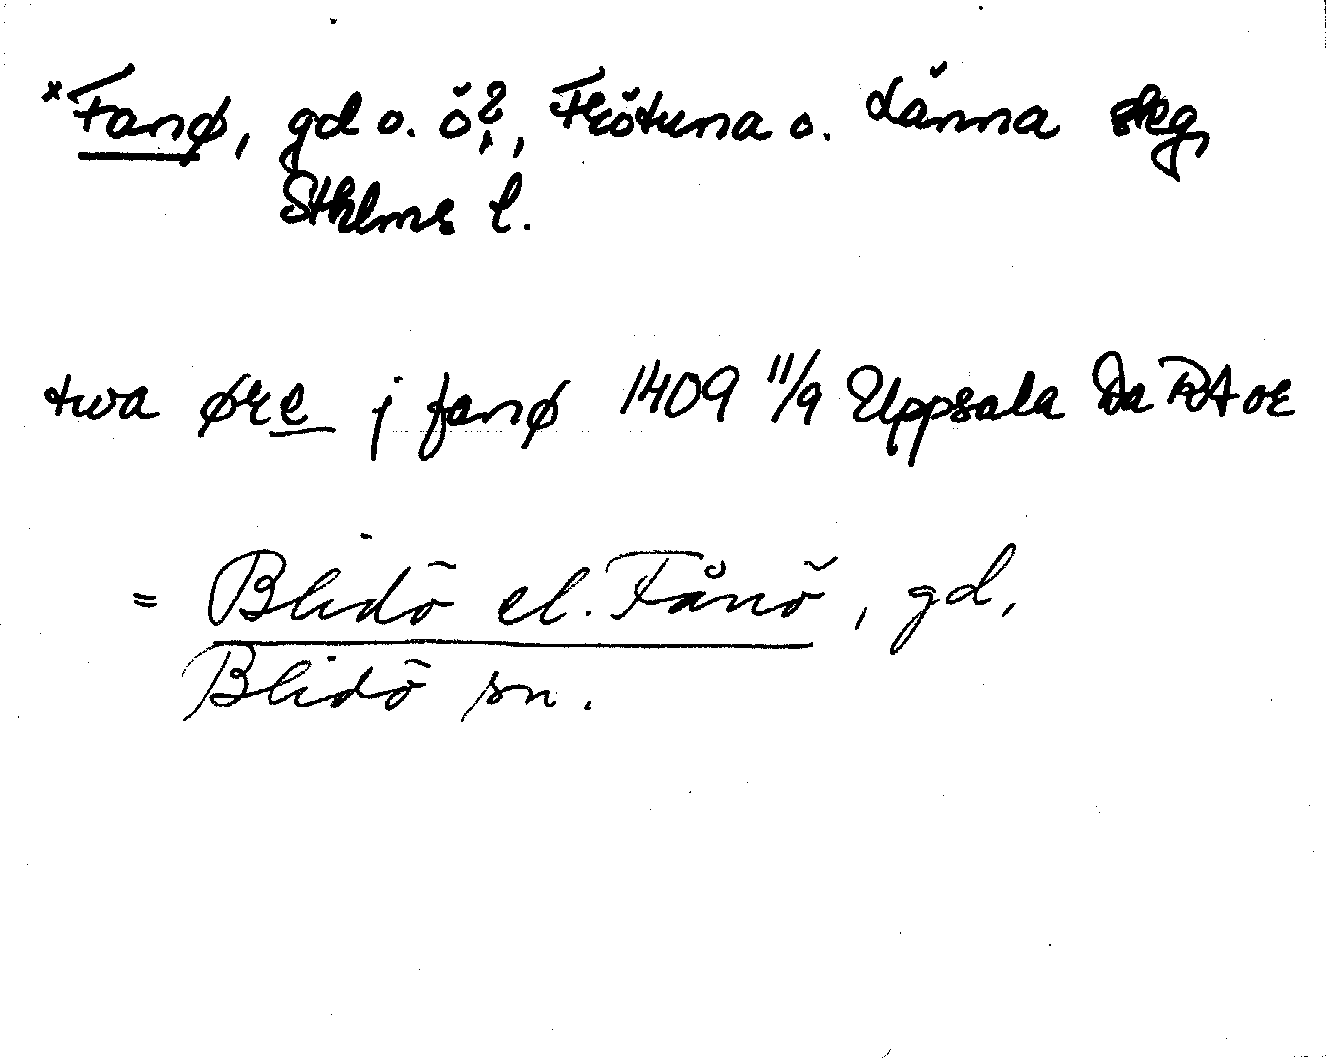 *Fanø, gd o. ö?, Frötuna o. Länna skg,
Sthlms l.
twa øre j fanø 1409 11/9 Uppsala Da RA or
= Blidö el. Fånö, gd,
Blidö sn.